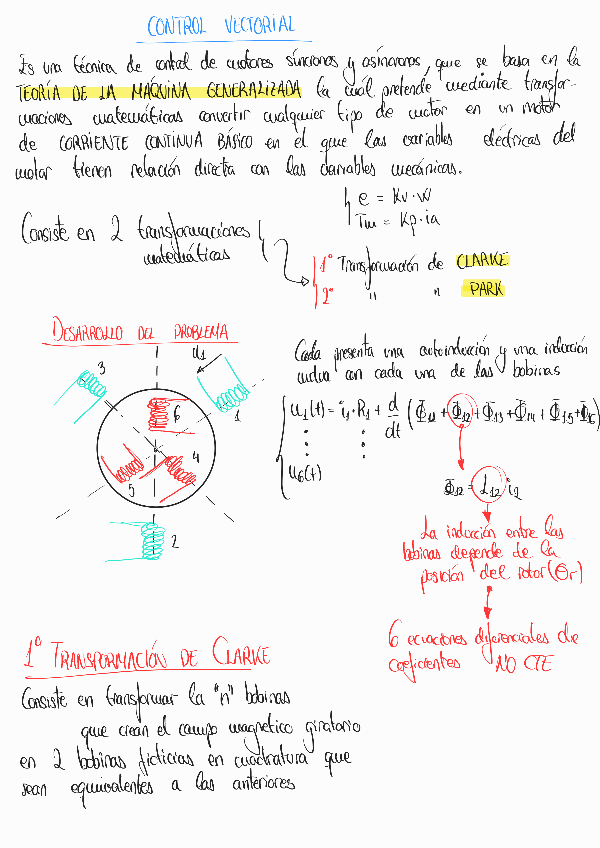 CONTROL VECTORIAL
Es una técnica de control de motores síncronos y asíncronos, que se basa en la
TEORÍA DE LA MÁQUINA GENERALIZADA la cúal pretende mediante transfor-
maciones matemáticas convertir cualquier tipo de motor en un motor
de CORRIENTE CONTINUA BÁSICO en el que las variables eléctricas del
motor tienen relación directa con las variables mecánicas.
e = Kv · w
Tm = Kp · ia
Consiste en 2 transformaciones
matemáticas
1º Transformación de CLARKE
2º " " PARK
DESARROLLO DEL PROBLEMA
3
u1
1
6
4
5
2
Cada presenta una autoinducción y una inducción
mutua con cada una de las bobinas
u1(t) = i1 · R1 + d/dt (Φ11 + Φ12 + Φ13 + Φ14 + Φ15 + Φ16)
⋮ ⋮ ⋮
u6(t)
Φ12 = L12 i2
La inducción entre las
bobinas depende de la
posición del rotor (θr)
6 ecuaciones diferenciales de
coeficientes NO CTE
1º TRANSFORMACIÓN DE CLARKE
Consiste en transformar la "n" bobinas
que crean el campo magnetico giratorio
en 2 bobinas ficticias en cuadratura que
sean equivalentes a las anteriores